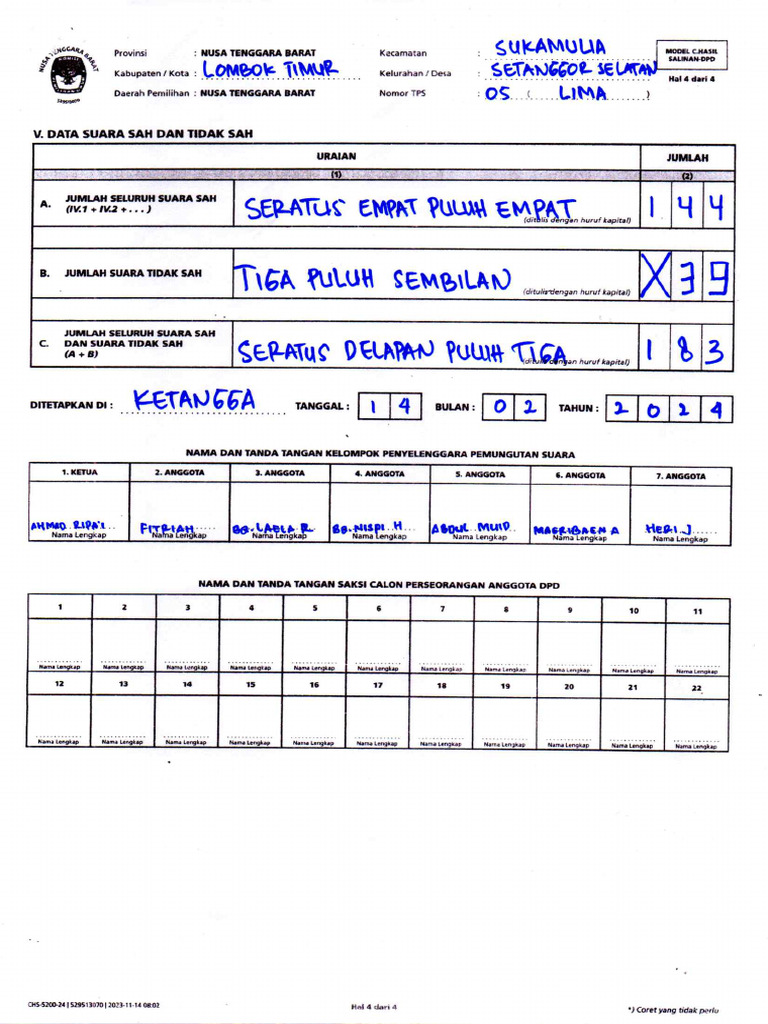 NUSA TENGGARA BARAT
Provinsi : NUSA TENGGARA BARAT
Kabupaten / Kota : LOMBOK TIMUR
Daerah Pemilihan : NUSA TENGGARA BARAT
Kecamatan : SUKAMULIA
Kelurahan / Desa : SETANGGOR SELATAN
Nomor TPS : 05 ( LIMA )
MODEL C.HASIL
SALINAN-DPD
Hal 4 dari 4
V. DATA SUARA SAH DAN TIDAK SAH
URAIAN JUMLAH
(1) (2)
A. JUMLAH SELURUH SUARA SAH
(IV.1 + IV.2 + . . . )
SERATUS EMPAT PULUH EMPAT 1 4 4
(ditulis dengan huruf kapital)
B. JUMLAH SUARA TIDAK SAH
TIGA PULUH SEMBILAN X 3 9
(ditulis dengan huruf kapital)
C. JUMLAH SELURUH SUARA SAH
DAN SUARA TIDAK SAH
(A + B)
SERATUS DELAPAN PULUH TIGA 1 8 3
(ditulis dengan huruf kapital)
DITETAPKAN DI : KETANGGA TANGGAL : 1 4 BULAN : 0 2 TAHUN : 2 0 2 4
NAMA DAN TANDA TANGAN KELOMPOK PENYELENGGARA PEMUNGUTAN SUARA
1. KETUA 2. ANGGOTA 3. ANGGOTA 4. ANGGOTA 5. ANGGOTA 6. ANGGOTA 7. ANGGOTA
AHMAD RIPA'I FITRIAH BQ. LAELA R BQ. NISPI H ABDUL MUID MAGRIBAEN A HERI J
Nama Lengkap Nama Lengkap Nama Lengkap Nama Lengkap Nama Lengkap Nama Lengkap Nama Lengkap
NAMA DAN TANDA TANGAN SAKSI CALON PERSEORANGAN ANGGOTA DPD
1 2 3 4 5 6 7 8 9 10 11
Nama Lengkap Nama Lengkap Nama Lengkap Nama Lengkap Nama Lengkap Nama Lengkap Nama Lengkap Nama Lengkap Nama Lengkap Nama Lengkap Nama Lengkap
12 13 14 15 16 17 18 19 20 21 22
Nama Lengkap Nama Lengkap Nama Lengkap Nama Lengkap Nama Lengkap Nama Lengkap Nama Lengkap Nama Lengkap Nama Lengkap Nama Lengkap Nama Lengkap
CHS-5200-24 | 529513070 | 2023-11-14 08:02
Hal 4 dari 4
*) Coret yang tidak perlu